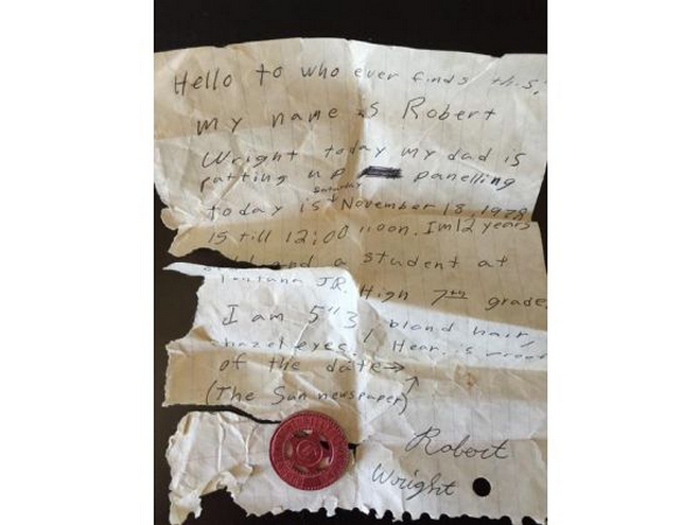 Hello to who ever finds this.
my name is Robert
Wright today my dad is
putting up panelling
Saturday
today is November 18, 1978
15 till 12:00 noon. Im 12 years
old and a student at
Fontana JR. High 7th grade
I am 5"3, blond hair,
hazel eyes. Hear is proof
of the date→
(The Sun newspaper)
Robert
Wright